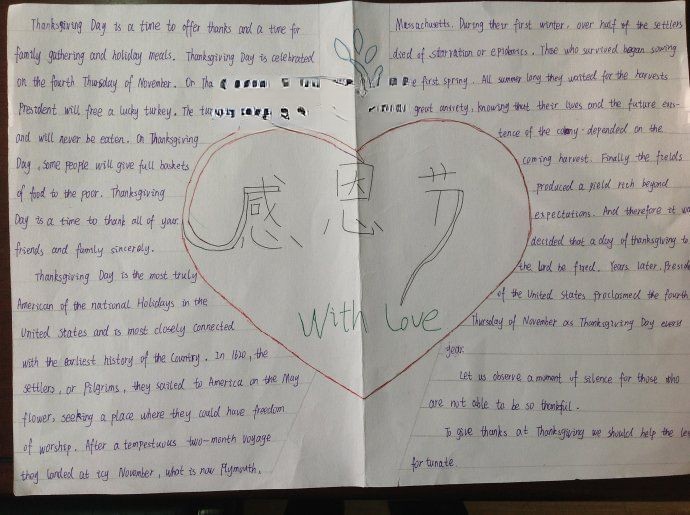 Thanksgiving Day is a time to offer thanks and a time for
family gathering and holiday meals. Thanksgiving Day is celebrated
on the fourth Thursday of November. On Tha
President will free a lucky turkey. The tur
and will never be eaten. On Thanksgiving
Day, some people will give full baskets
of food to the poor. Thanksgiving
Day is a time to thank all of your
friends and family sincerely.
Thanksgiving Day is the most truly
American of the national Holidays in the
United States and is most closely connected
with the earliest history of the Country. In 1620, the
settlers, or Pilgrims, they sailed to America on the May
flower, seeking a place where they could have freedom
of worship. After a tempestuous two-month voyage
they landed at icy November, what is now Plymouth,
感恩节
With Love
Massachusetts. During their first winter, over half of the settlers
died of starvation or epidemics. Those who survived began sowing
e first spring. All summer long they waited for the harvests
great anxiety, knowing that their lives and the future exis-
tence of the colony depended on the
coming harvest. Finally the fields
produced a yield rich beyond
expectations. And therefore it wa
decided that a day of thanksgiving to
the lord be fixed. Years later, Presid
of the United States proclaimed the fourth
Thursday of November as Thanksgiving Day every
year.
Let us observe a moment of silence for those who
are not able to be so thankful.
To give thanks at Thanksgiving we should help the le
fortunate.